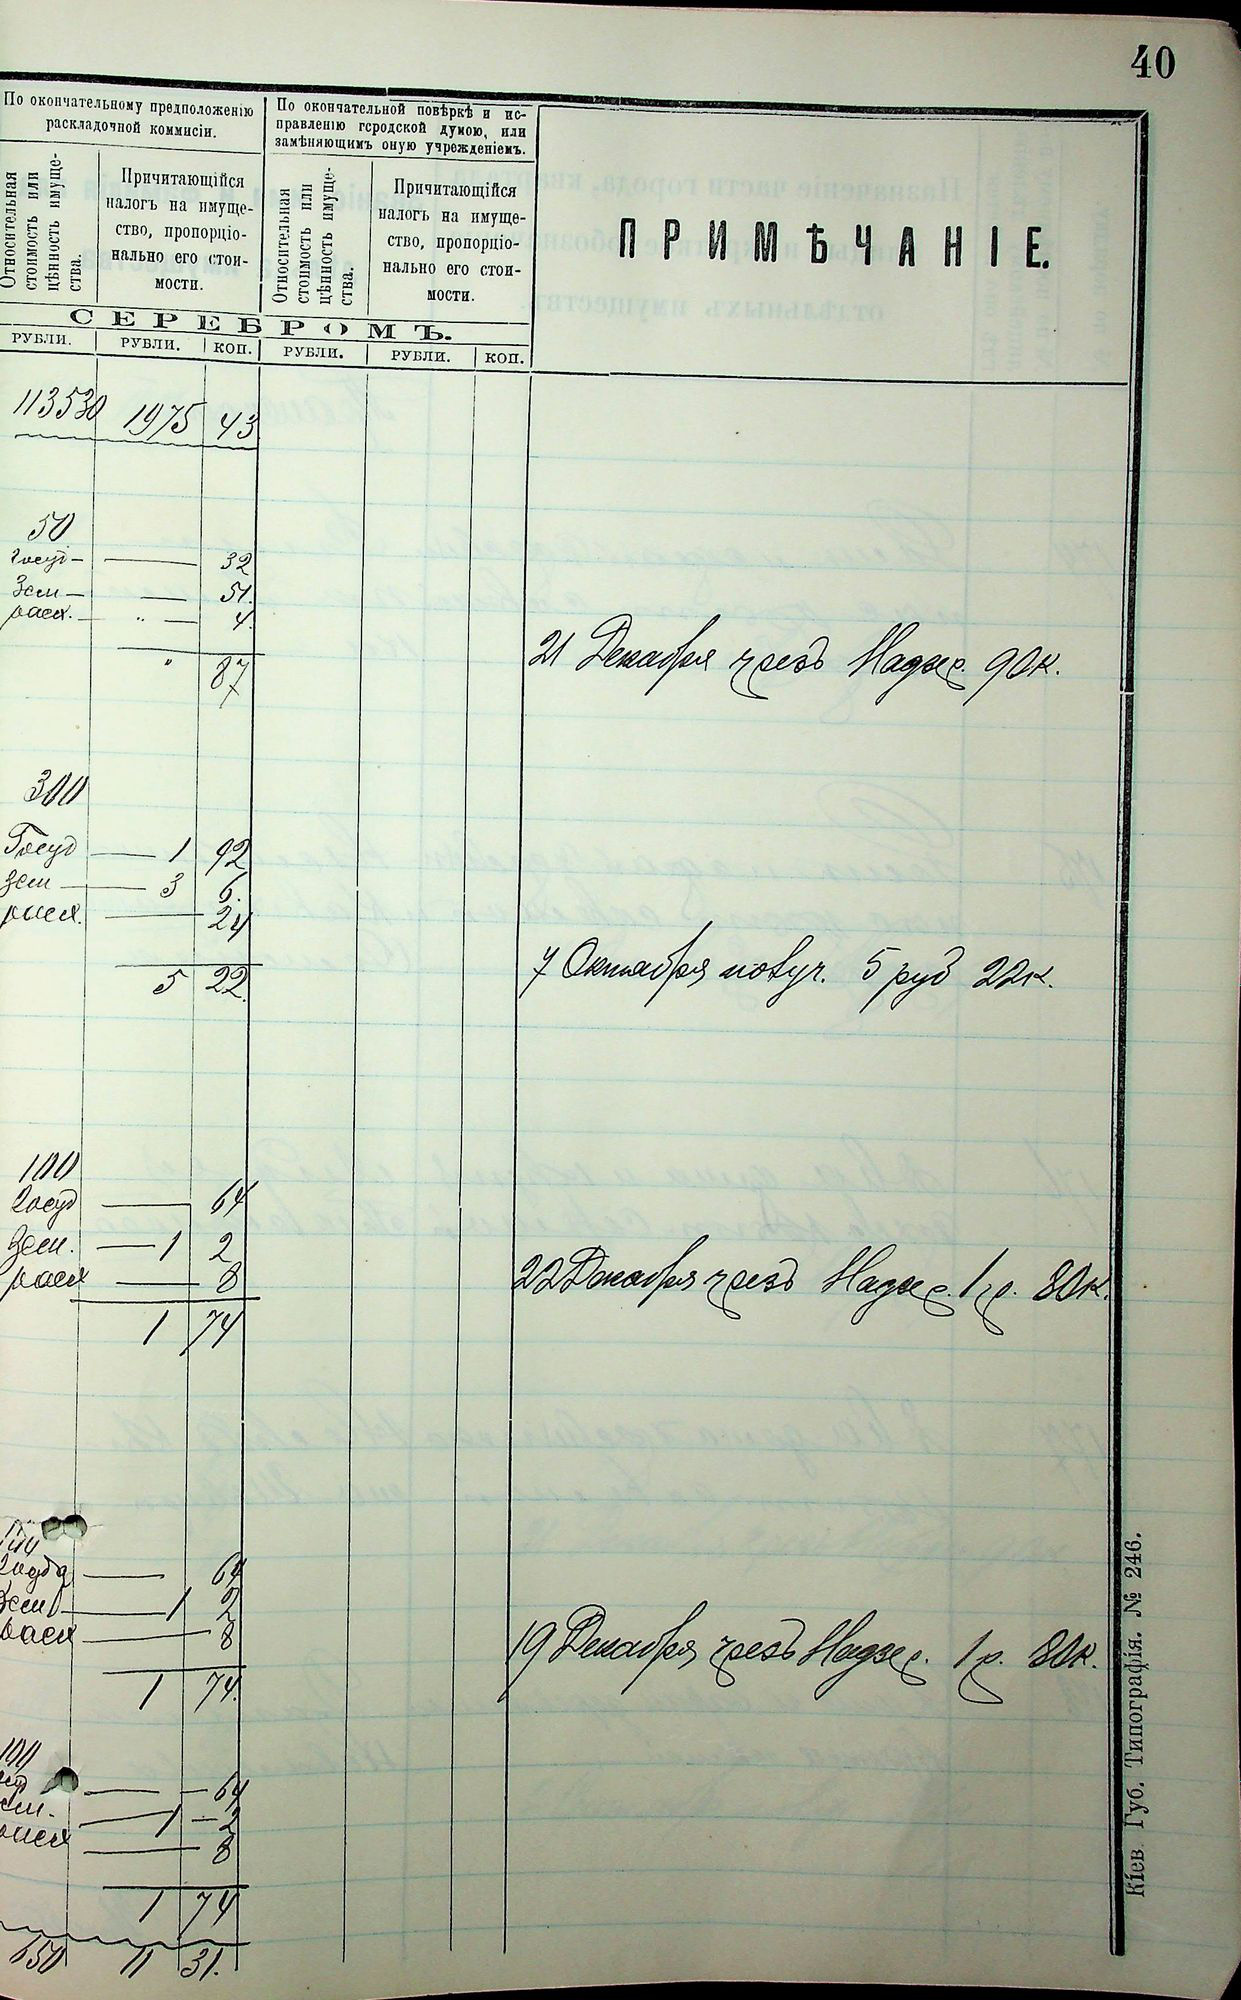 40
По окончательному предположенію
раскладочной коммисіи.
По окончательной повѣркѣ и ис-
правленію городской думою, или
замѣняющимъ оную учрежденіемъ.
Относительная
стоимость или
цѣнность имуще-
ства.
Причитающійся
налогъ на имуще-
ство, пропорціо-
нально его стои-
мости.
Относительная
стоимость или
цѣнность имуще-
ства.
Причитающійся
налогъ на имуще-
ство, пропорціо-
нально его стои-
мости.
ПРИМѢЧАНІЕ.
СЕРЕБРОМЪ.
РУБЛИ. РУБЛИ. КОП. РУБЛИ. РУБЛИ. КОП.
113530 1975 43
50
госуд — — 32
Зем — — 51.
расх. — " — 4.
" 87
21 Декабря чрезъ Надзир. 90 к.
300
Госуд — 1 92
Зем — 3 6.
расх. — 24
5 22.
7 Октября получ. 5 руб 22 к.
100
Госуд — 64
Зем. — 1 2
расх — 8
1 74
22 Декабря чрезъ Надзир. 1 р. 80 к.
100
— 64
Зем — 1 2
расх — 8
1 74.
19 Декабря чрезъ Надзир. 1 р. 80 к.
100
— — 64
1 — 2
— 8
1 74
650 11 31.
Кіев. Губ. Типографія. № 246.